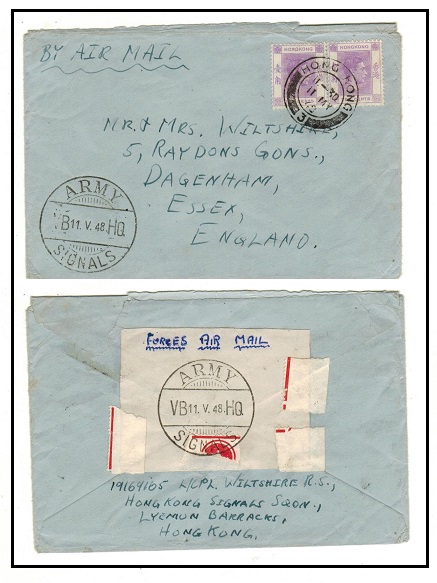 BY AIR MAIL
HONGKONG HONGKONG
HONG KONG
11 MY
48
CENTS
MR. & MRS. WILTSHIRE,
5, RAYDONS GDNS.,
DAGENHAM,
ESSEX,
ENGLAND.
ARMY
VB 11. V. 48. HQ
SIGNALS
FORCES AIR MAIL
ARMY
VB 11. V. 48. HQ
SIGNALS
19169105 L/CPL. WILTSHIRE R.S.,
HONGKONG SIGNALS SQDN.,
LYEMUN BARRACKS,
HONGKONG.